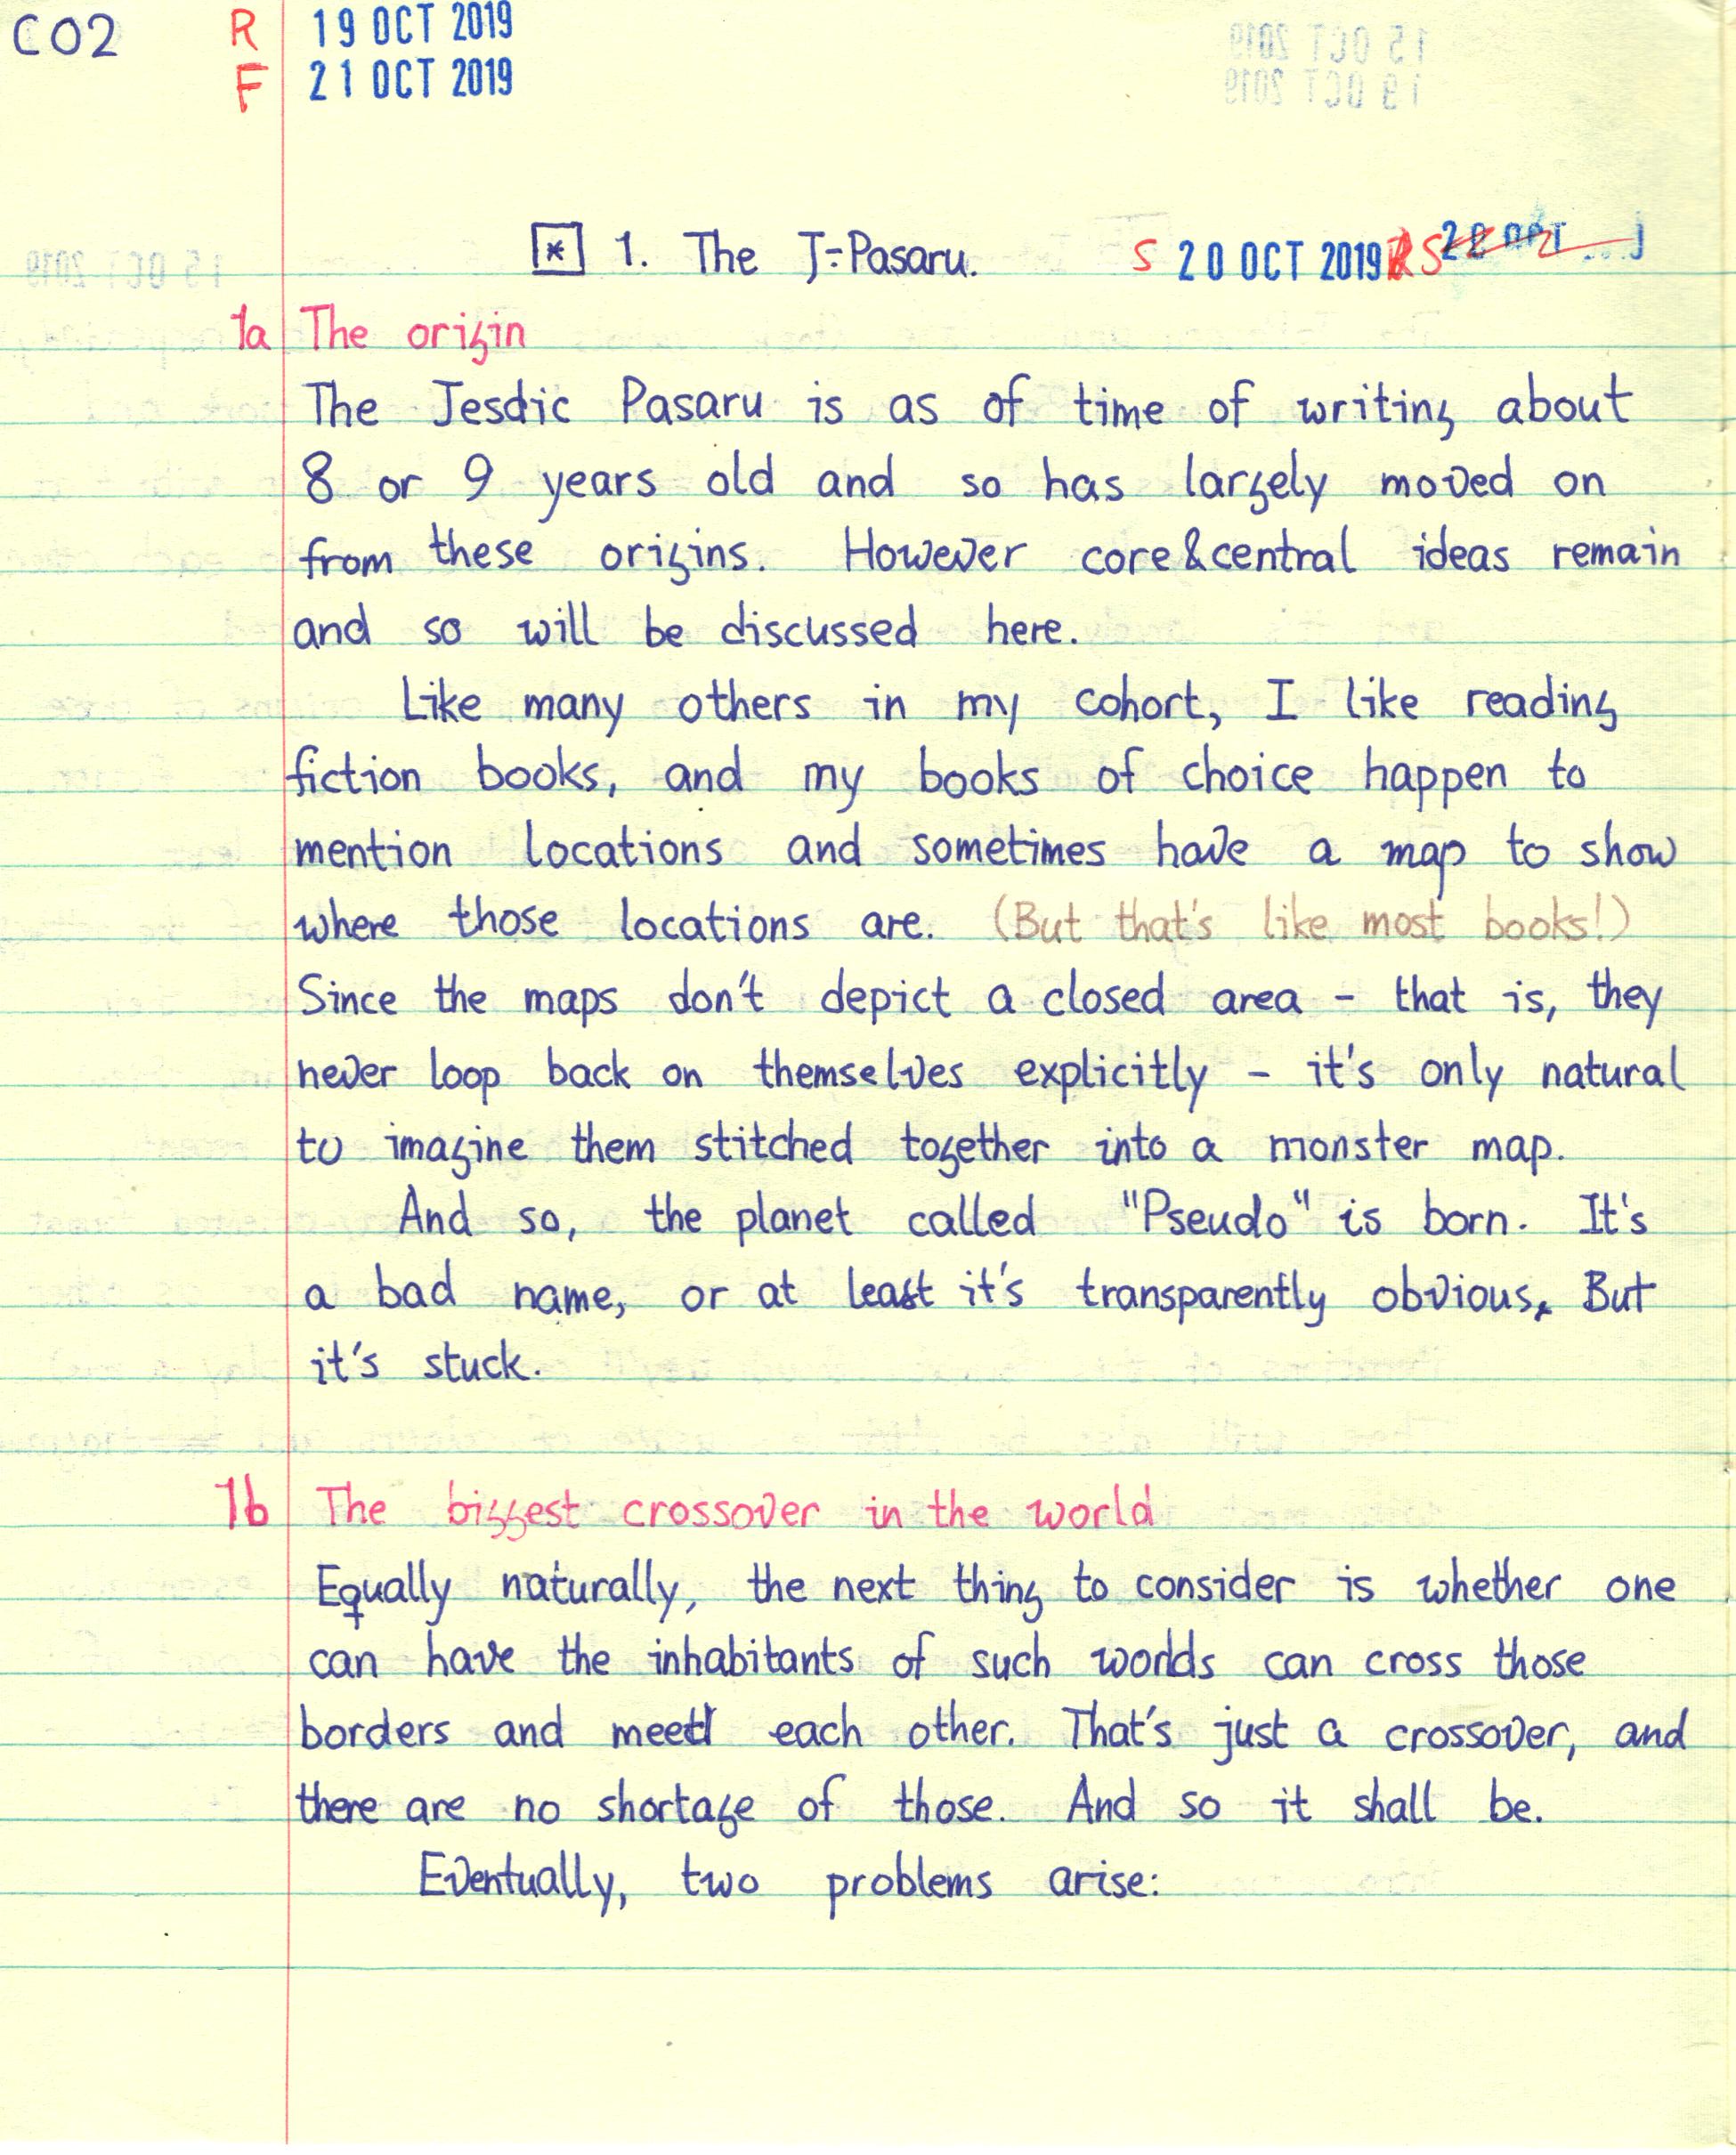 C02 R 19 OCT 2019
F 21 OCT 2019
[*] 1. The J-Pasaru. S 20 OCT 2019 RS
1a The origin
The Jesdic Pasaru is as of time of writing about
8 or 9 years old and so has largely moved on
from these origins. However core&central ideas remain
and so will be discussed here.
Like many others in my cohort, I like reading
fiction books, and my books of choice happen to
mention locations and sometimes have a map to show
where those locations are. (But that's like most books!)
Since the maps don't depict a closed area - that is, they
never loop back on themselves explicitly - it's only natural
to imagine them stitched together into a monster map.
And so, the planet called "Pseudo" is born. It's
a bad name, or at least it's transparently obvious. But
it's stuck.
1b The biggest crossover in the world
Equally naturally, the next thing to consider is whether one
can have the inhabitants of such worlds can cross those
borders and meet each other. That's just a crossover, and
there are no shortage of those. And so it shall be.
Eventually, two problems arise: